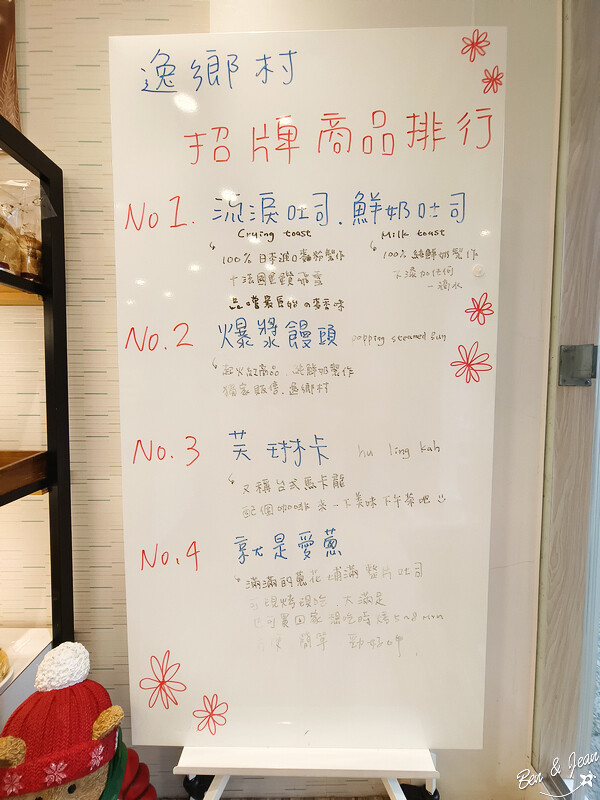 逸鄉村
招牌商品排行
No 1. 流淚吐司．鮮奶吐司
Crying toast
Milk toast
100%日本進口麵粉製作
十法國
品嚐最原始の麥香味
100%純鮮奶製作
不添加任何
一滴水
No.2 爆漿饅頭 popping steamed bun
超火紅商品．純鮮奶製作
獨家販售．逸鄉村
No.3 芙琳卡 hu ling kah
又稱台式馬卡龍
配個咖啡來一下美味下午茶吧
No.4 就是愛蔥
滿滿的蔥花 鋪滿 整片吐司
可現烤現吃．大滿足
也可買回家 想吃時 烤5~8 min
簡單
Ben & Jean